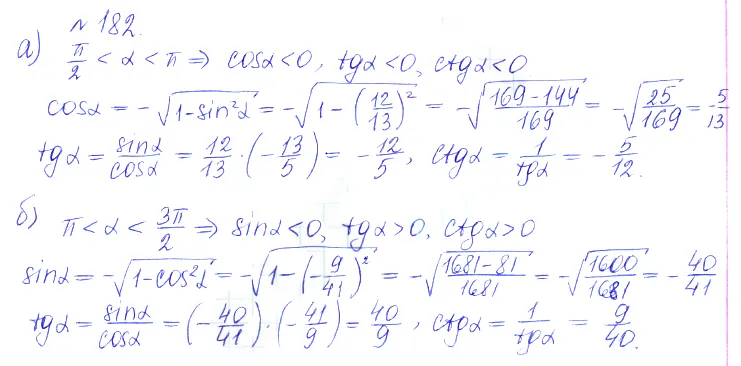 № 182.
а) π/2 < α < π ⇒ cosα < 0, tgα < 0, ctgα < 0
cosα = -√(1-sin²α) = -√(1-(12/13)²) = -√((169-144)/169) = -√(25/169) = -5/13
tgα = sinα/cosα = 12/13 · (-13/5) = -12/5, ctgα = 1/tgα = -5/12.
б) π < α < 3π/2 ⇒ sinα < 0, tgα > 0, ctgα > 0
sinα = -√(1-cos²α) = -√(1-(-9/41)²) = -√((1681-81)/1681) = -√(1600/1681) = -40/41
tgα = sinα/cosα = (-40/41) · (-41/9) = 40/9, ctgα = 1/tgα = 9/40.